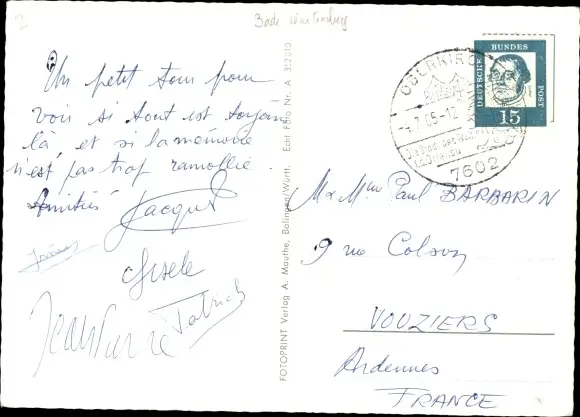 2
Bade Wurtemberg
Un petit tour pour
voir si tout est toujours
là, et si la mémoire
n'est pas trop ramollie.
Amitiés Jacques
Gisele
Jean Pierre Patrick
FOTOPRINT Verlag A. Mauthe, Balingen/Württ. Echt Foto Nr. A
DEUTSCHE BUNDES POST
15
OBERKIRCH
7.65-12
7602
M x Mme Paul BARBARIN
9 rue Colson
VOUZIERS
Ardennes
FRANCE